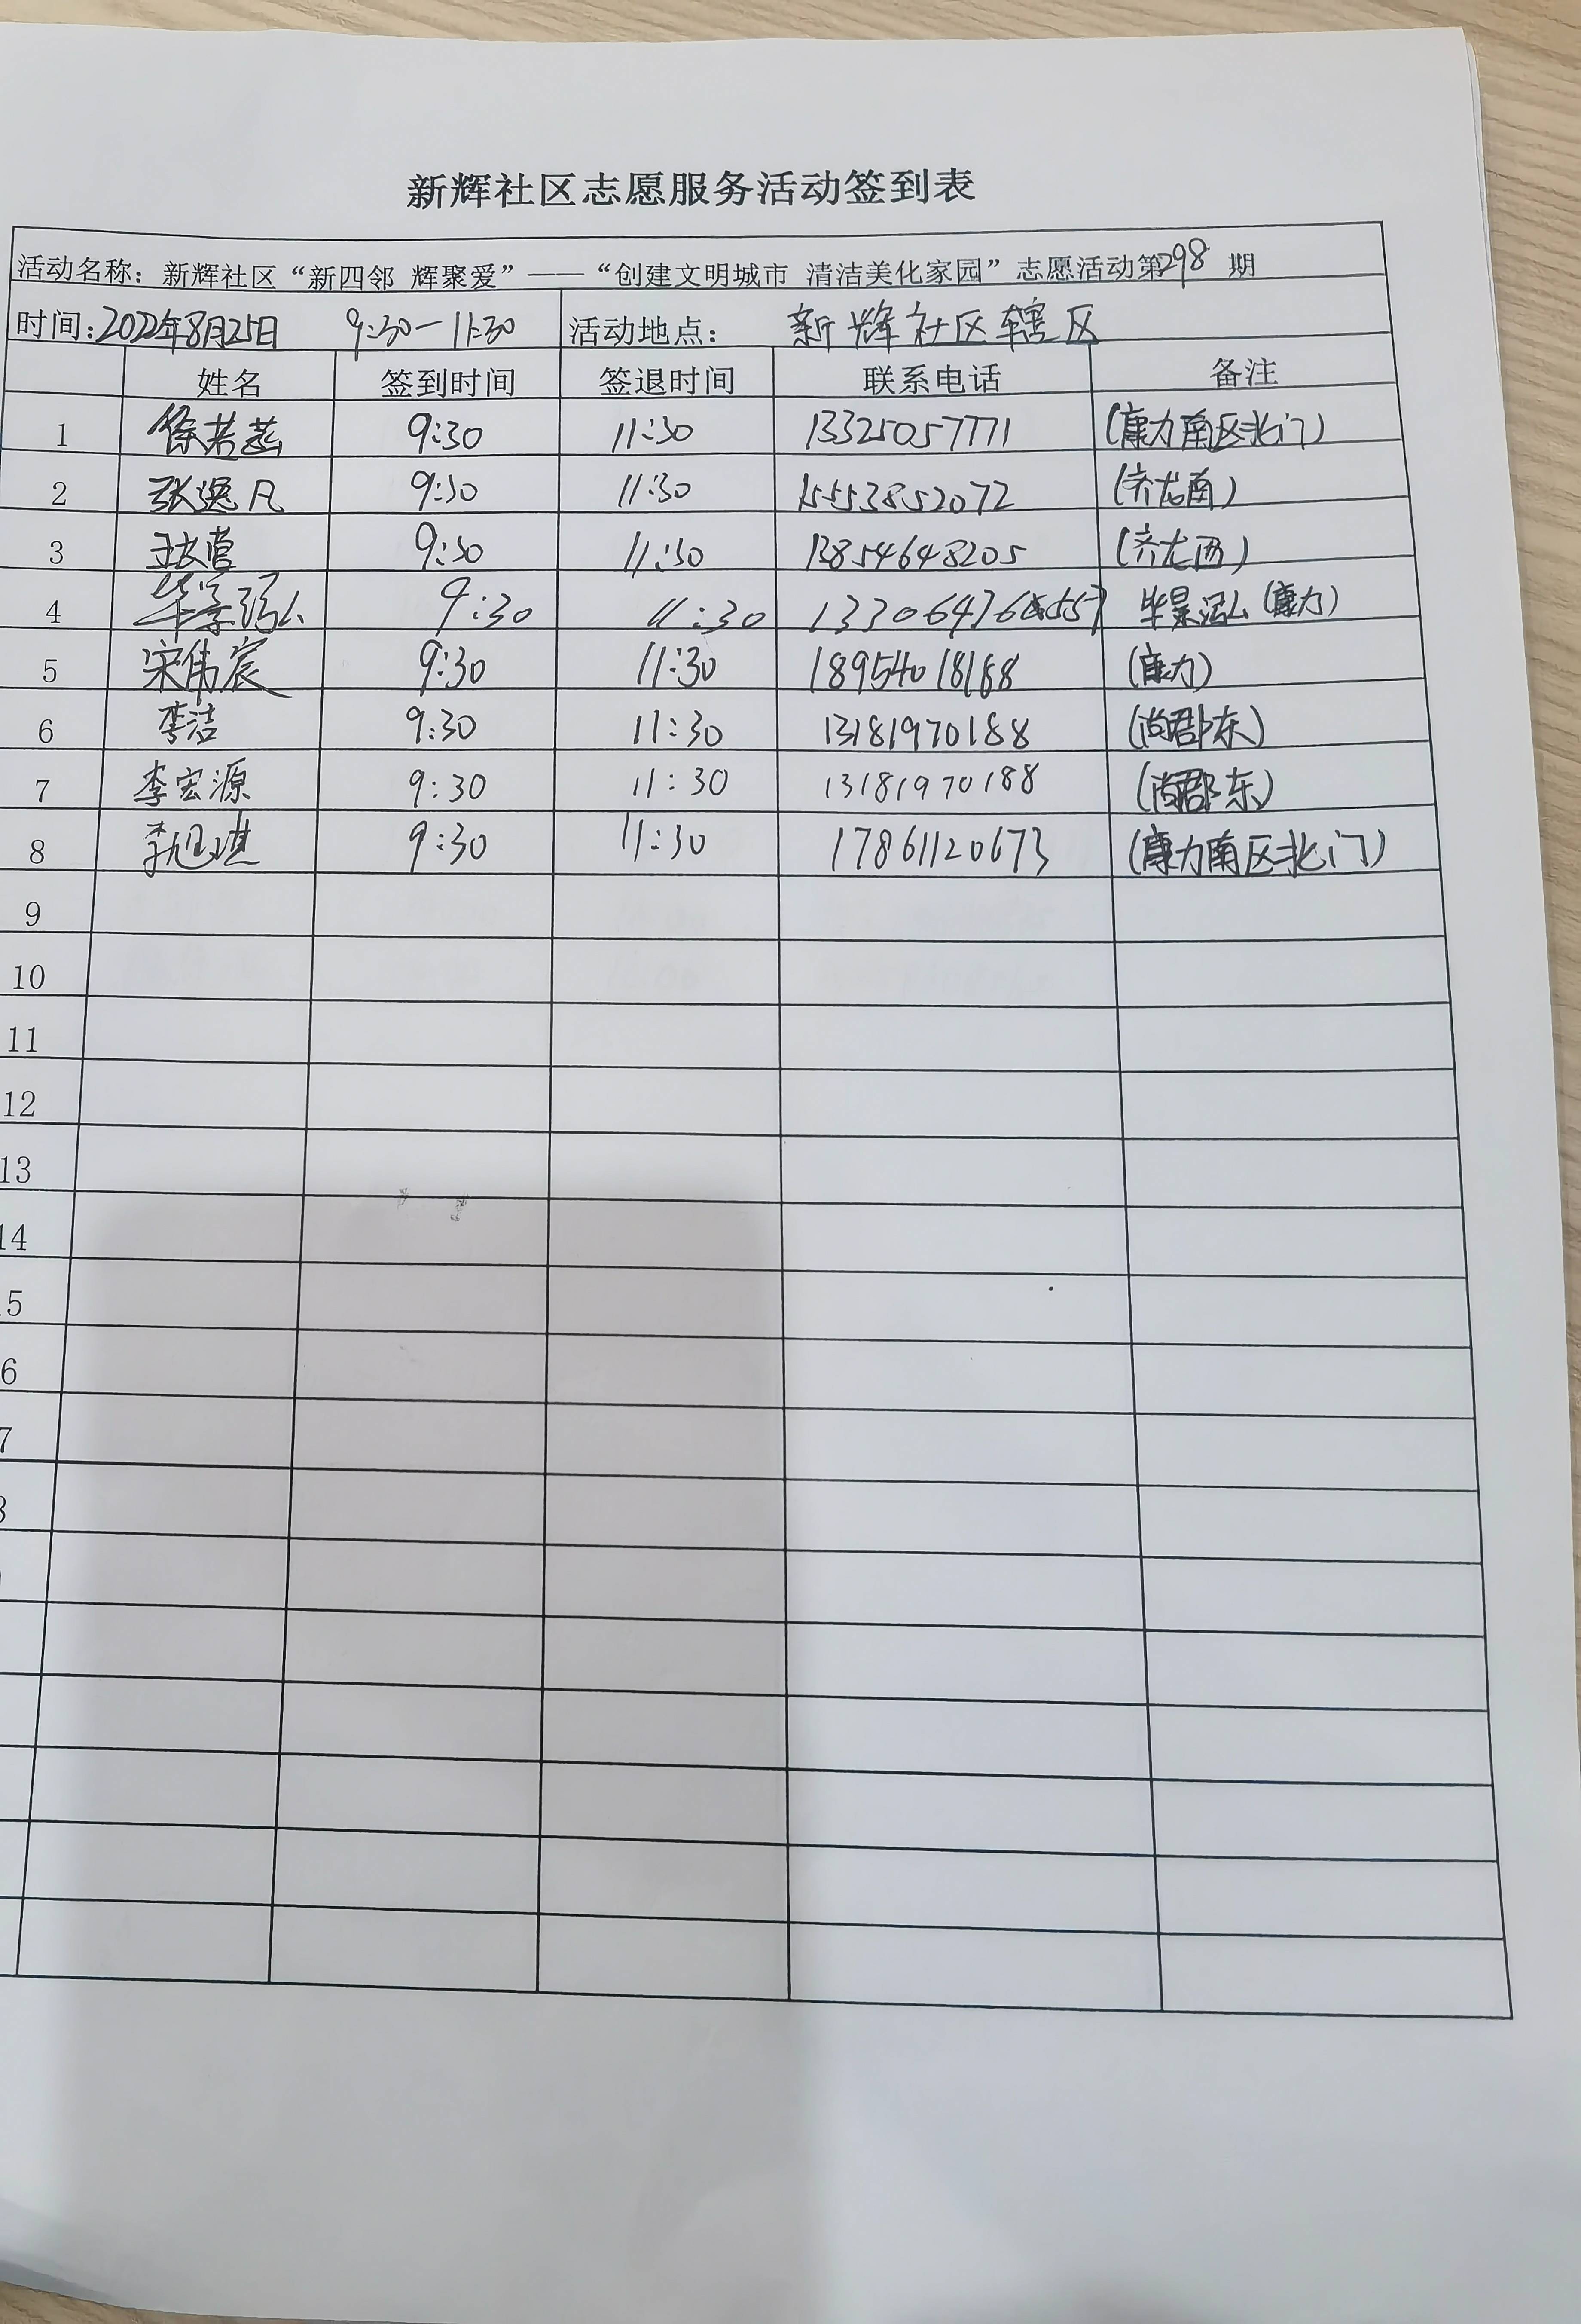 新辉社区志愿服务活动签到表
活动名称：新辉社区“新四邻 辉聚爱”——“创建文明城市 清洁美化家园”志愿活动第298期
时间：2022年8月25日 9:30—11:30 活动地点：新辉社区辖区
姓名 签到时间 签退时间 联系电话 备注
1 徐若菡 9:30 11:30 13325057771 (康力南区北门)
2 张逸凡 9:30 11:30 15553852072 (齐龙南)
3 9:30 11:30 13854648205 (齐龙西)
4 毕景泓 9:30 11:30 毕景泓(康力)
5 宋伟宸 9:30 11:30 18954018188 (康力)
6 李洁 9:30 11:30 13181970188 (尚郡东)
7 李宏源 9:30 11:30 13181970188 (尚郡东)
8 李旭琪 9:30 11:30 17861120673 (康力南区北门)
9
10
11
12
13
14
5
6
7